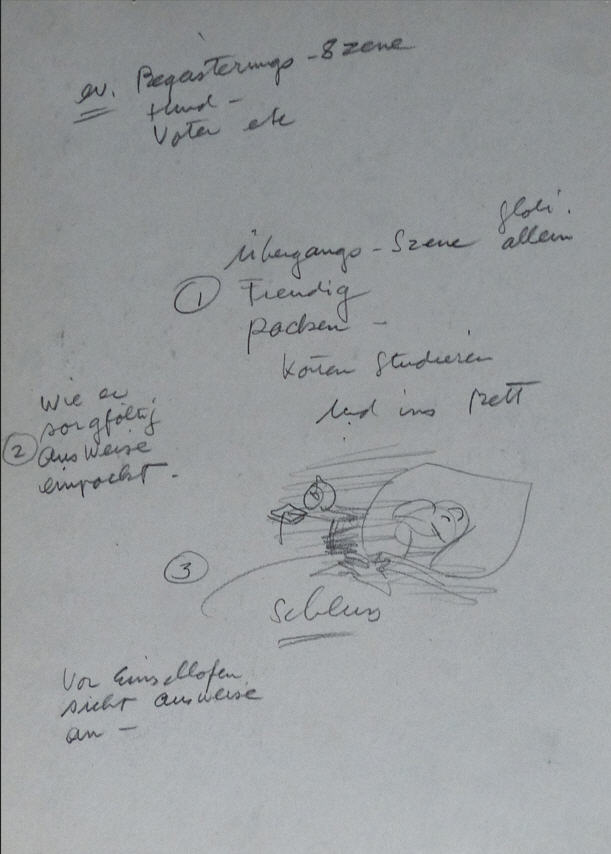 ev. Begeisterungs-Szene
Hund -
Vater etc
Globi.
Übergangs-Szene allein
① Freudig
packen -
Karten Studieren
Und ins Bett
Wie er
sorgfältig
② Ausweise
einpackt.
③
Schluss
Vor Einschlafen
sieht Ausweise
an -